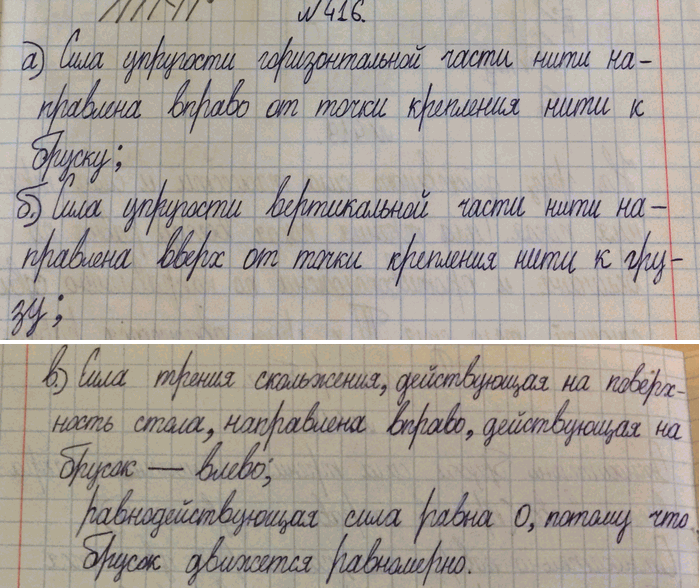 №416.
а) Сила упругости горизонтальной части нити на-
правлена вправо от точки крепления нити к
бруску;
б.) Сила упругости вертикальной части нити на-
правлена вверх от точки крепления нити к гру-
зу;
в.) Сила трения скольжения, действующая на поверх-
ность стола, направлена вправо, действующая на
брусок — влево;
равнодействующая сила равна 0, потому что
брусок движется равномерно.